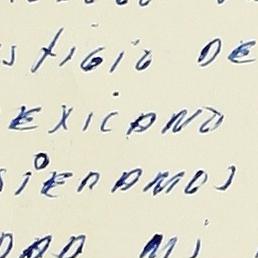 stigio DE
EXICANO
siERAMOS
Mi